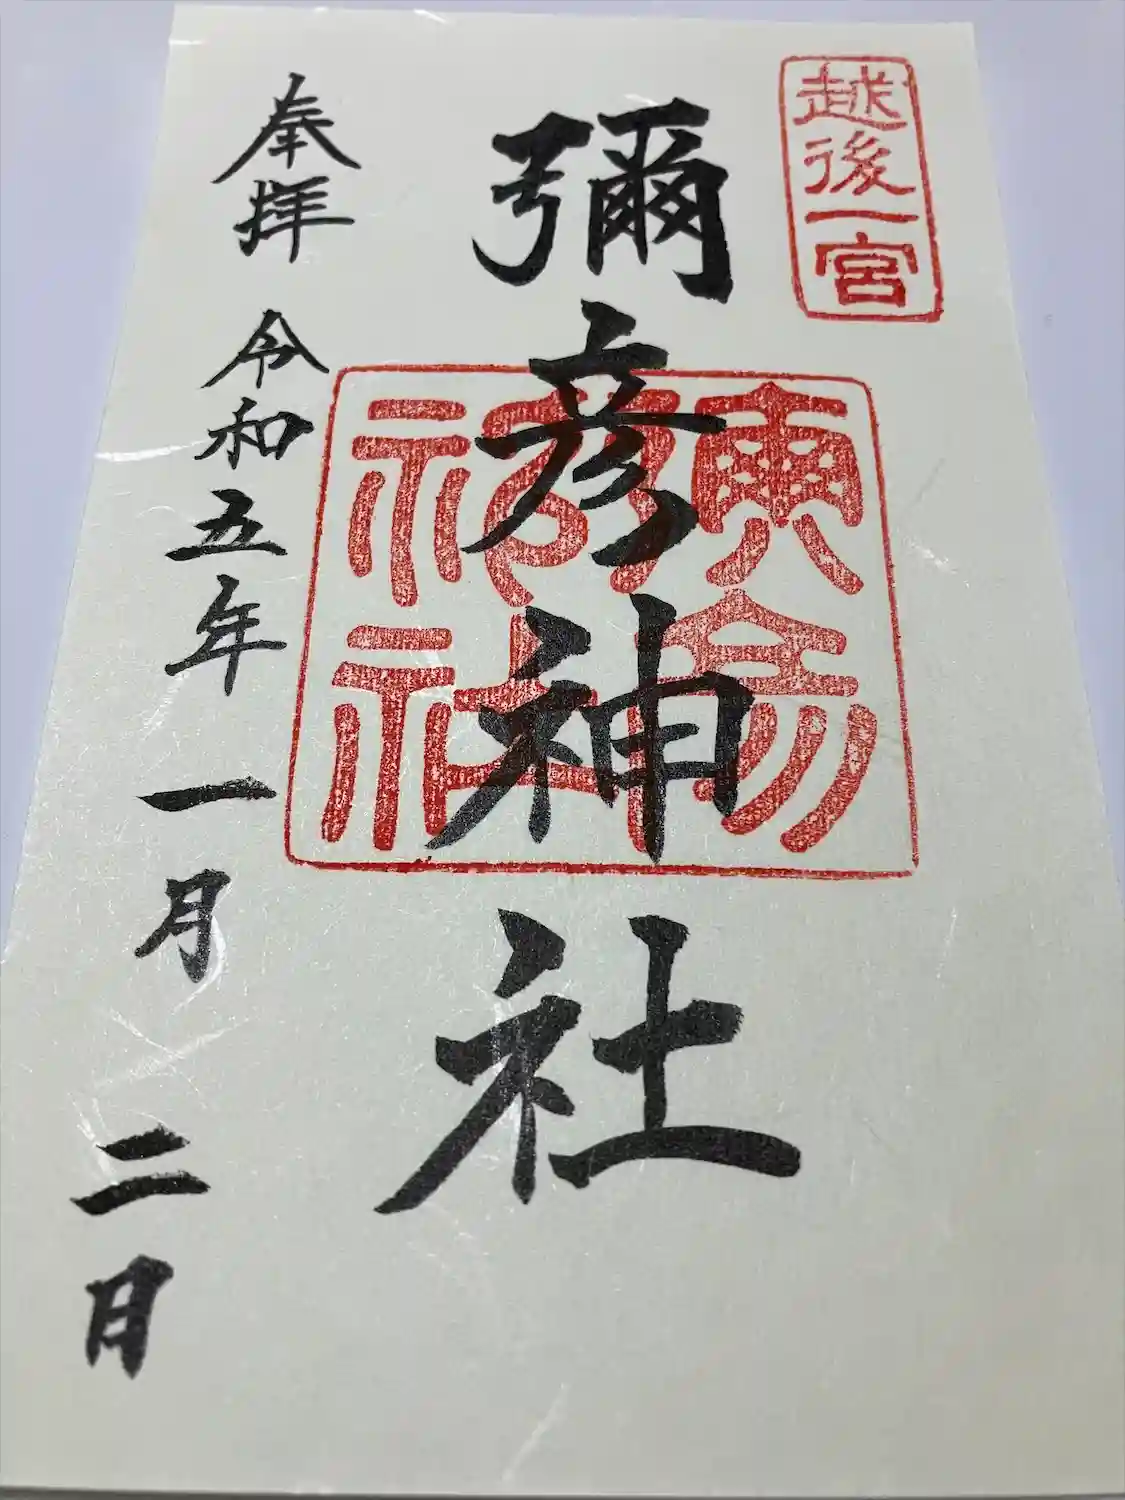 越後一宮
彌彦神社
奉拝
令和五年一月二日